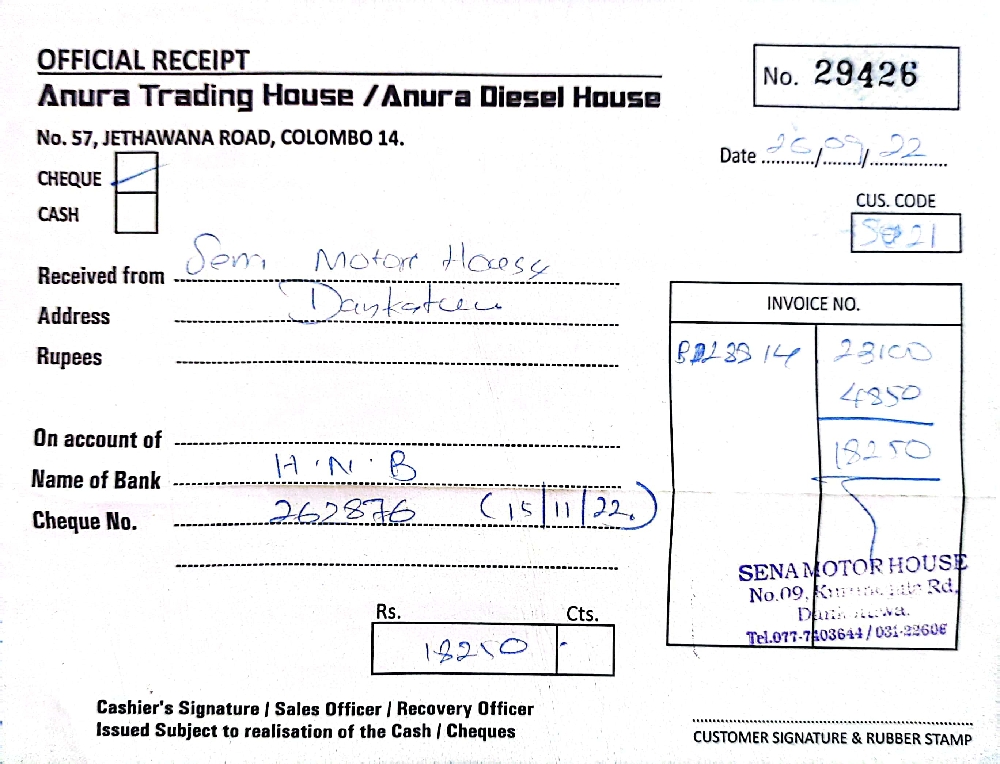 OFFICIAL RECEIPT
Anura Trading House / Anura Diesel House
No. 57, JETHAWANA ROAD, COLOMBO 14.
No. 29426
Date 26/09/22
CHEQUE
CASH
CUS. CODE
Received from Sena Motor House
Address
Rupees
On account of
Name of Bank H.N.B
Cheque No. 262876 (15/11/22.)
INVOICE NO.
23100
4850
18250
SENA MOTOR HOUSE
No.09, Rd,
Tel.077-7403644 / 031-22606
Rs. Cts.
18250 -
Cashier's Signature / Sales Officer / Recovery Officer
Issued Subject to realisation of the Cash / Cheques
CUSTOMER SIGNATURE & RUBBER STAMP